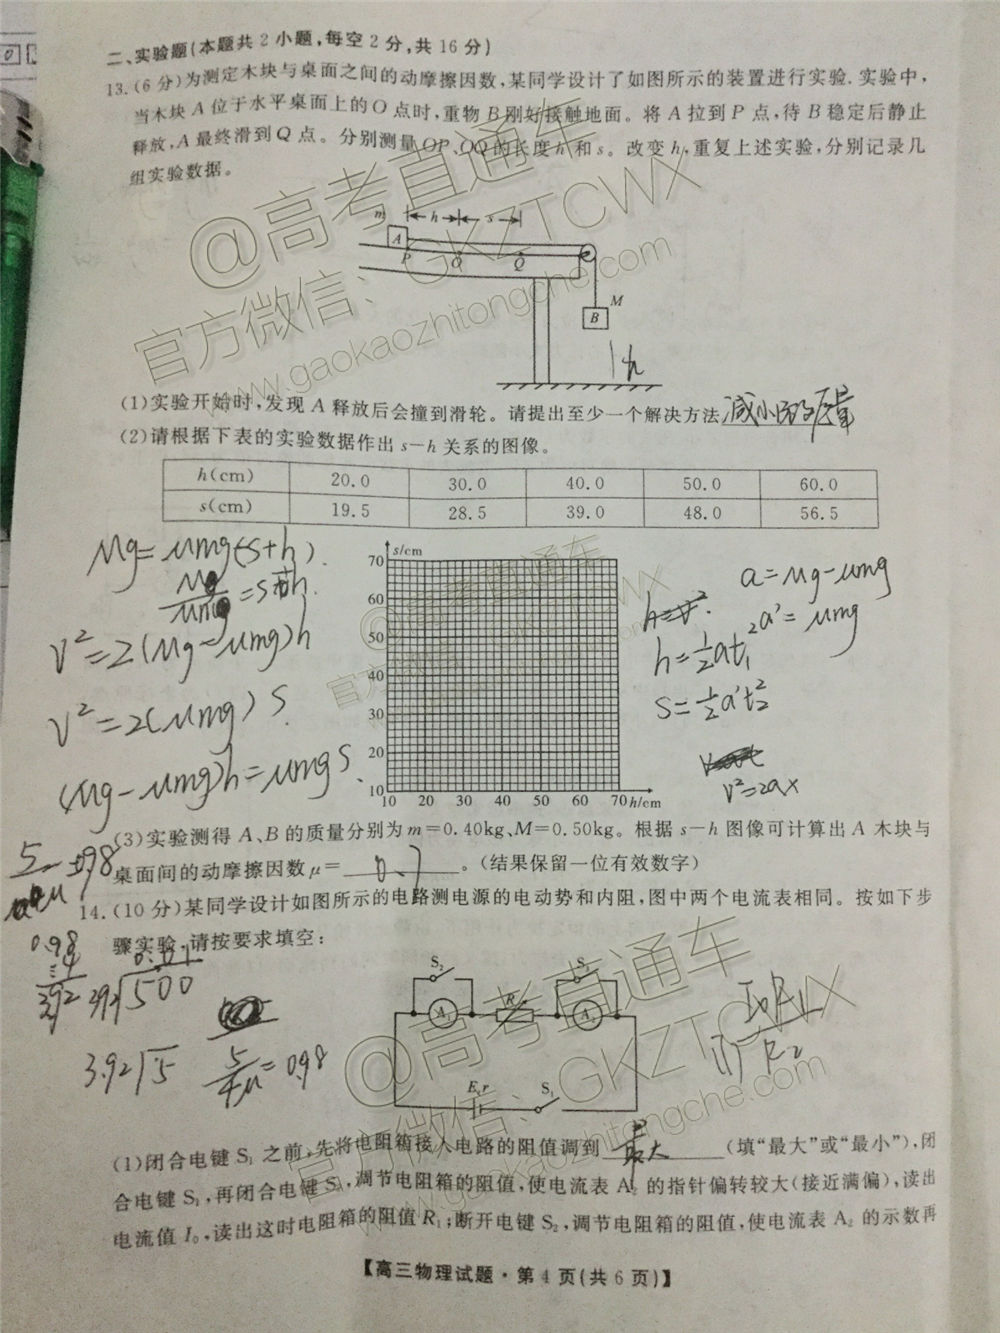 二、实验题(本题共2小题,每空2分,共16分)
13.(6分)为测定木块与桌面之间的动摩擦因数,某同学设计了如图所示的装置进行实验.实验中,
当木块A位于水平桌面上的O点时,重物B刚好接触地面。将A拉到P点,待B稳定后静止
释放,A最终滑到Q点。分别测量OP、OQ的长度h和s。改变h,重复上述实验,分别记录几
组实验数据。
m h s
A
P O Q
M
B
h
(1)实验开始时,发现A释放后会撞到滑轮。请提出至少一个解决方法减小B的质量
(2)请根据下表的实验数据作出s—h关系的图像。
h(cm) 20.0 30.0 40.0 50.0 60.0
s(cm) 19.5 28.5 39.0 48.0 56.5
Mg=μmg(s+h)
V²=2(Mg-μmg)h
V²=2(μmg)s
(Mg-μmg)h=μmgs
s/cm
70
60
50
40
30
20
10
10 20 30 40 50 60 70 h/cm
a=Mg-μmg
a'=μmg
h=½at₁²
s=½a't₂²
V²=2ax
(3)实验测得A、B的质量分别为m=0.40kg、M=0.50kg。根据s—h图像可计算出A木块与
桌面间的动摩擦因数μ=。(结果保留一位有效数字)
14.(10分)某同学设计如图所示的电路测电源的电动势和内阻,图中两个电流表相同。按如下步
骤实验,请按要求填空:
0.98
3.92
3.92 5
5/4μ=0.98
S₂
A₁ R
E,r S₁
(1)闭合电键S₁之前,先将电阻箱接入电路的阻值调到最大(填“最大”或“最小”),闭
合电键S₁,再闭合电键S₂,调节电阻箱的阻值,使电流表A₂的指针偏转较大(接近满偏),读出
电流值I₀,读出这时电阻箱的阻值R₁;断开电键S₂,调节电阻箱的阻值,使电流表A₂的示数再
【高三物理试题·第4页(共6页)】
@高考直通车
官方微信、GKZTCWX
www.gaokaozhitongche.com
@高考直通车
官方微信、GKZTCWX
@高考直通车
官方微信、GKZTCWX
www.gaokaozhitongche.com